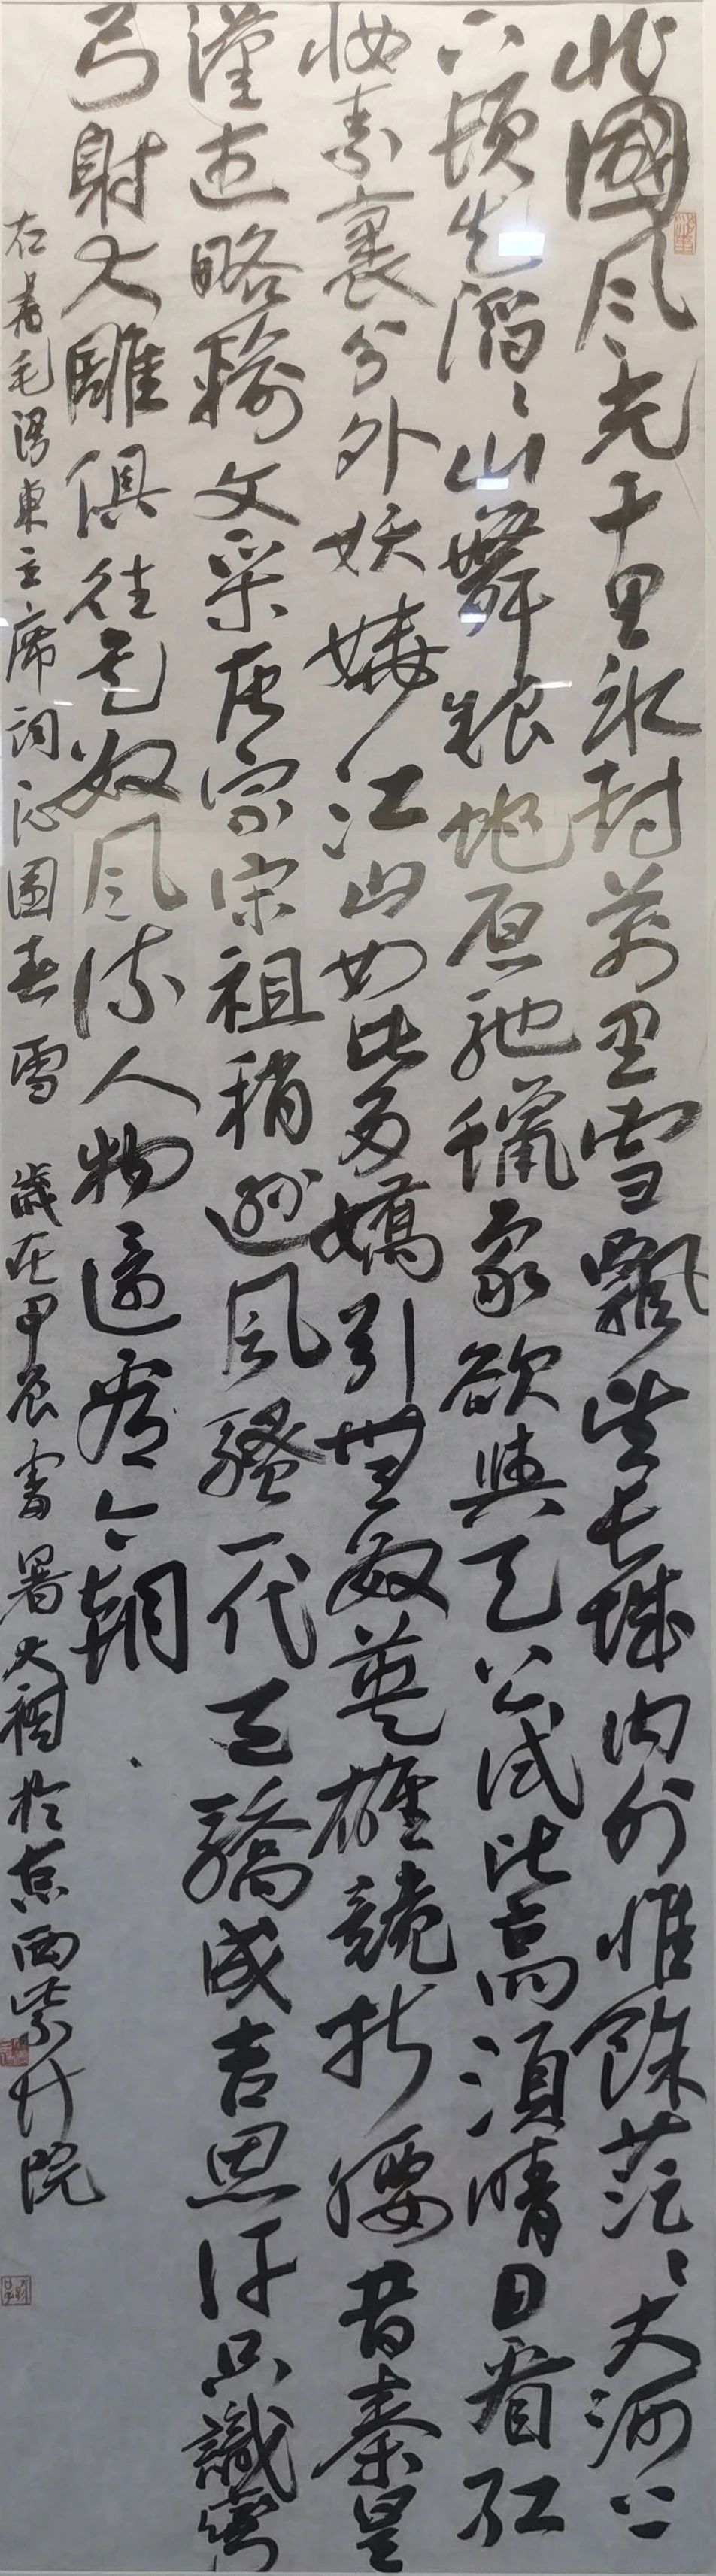 北國風光千里冰封萬里雪飄望長城內外惟餘莽〻大河上
下頓失滔〻山舞銀蛇原馳蠟象欲與天公試比高須晴日看紅
妝素裹分外妖嬈江山如此多嬌引無數英雄競折腰昔秦皇
漢武略輸文采唐宗宋祖稍遜風騷一代天驕成吉思汗只識彎
弓射大雕俱往矣數風流人物還看今朝
右書毛澤東主席詞沁園春雪 歲在甲辰處暑大樹於京西紫竹院